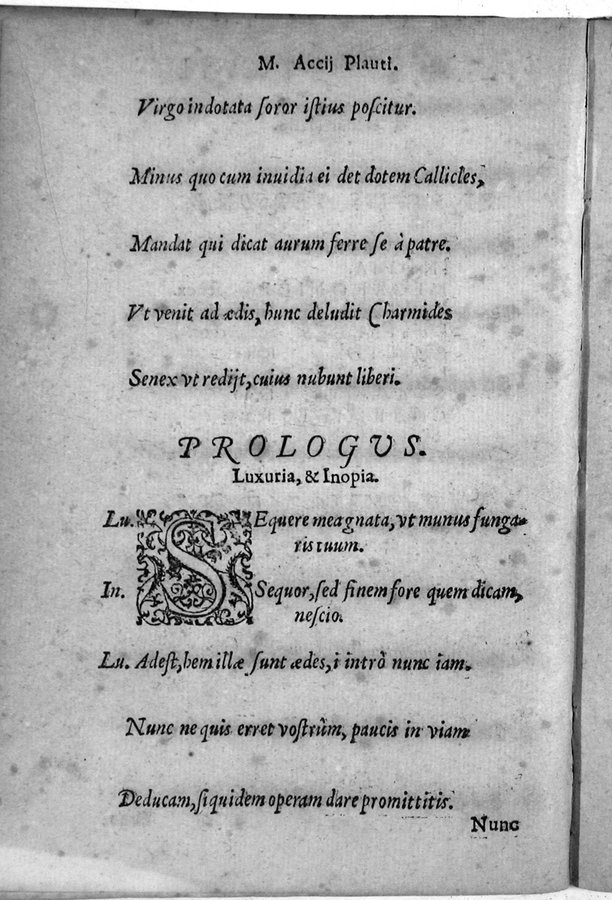 M. Accij Plauti.
Virgo indotata soror istius poscitur.
Minus quo cum inuidia ei det dotem Callicles,
Mandat qui dicat aurum ferre se à patre.
Vt venit ad ædis, hunc deludit Charmides
Senex vt redijt, cuius nubunt liberi.
PROLOGVS.
Luxuria, & Inopia.
Lu. SEquere mea gnata, vt munus funga-
ris tuum.
In. Sequor, sed finem fore quem dicam,
nescio.
Lu. Adest, hem illæ sunt ædes, i intrò nunc iam.
Nunc ne quis erret vostrûm, paucis in viam
Deducam, siquidem operam dare promittitis.
Nunc